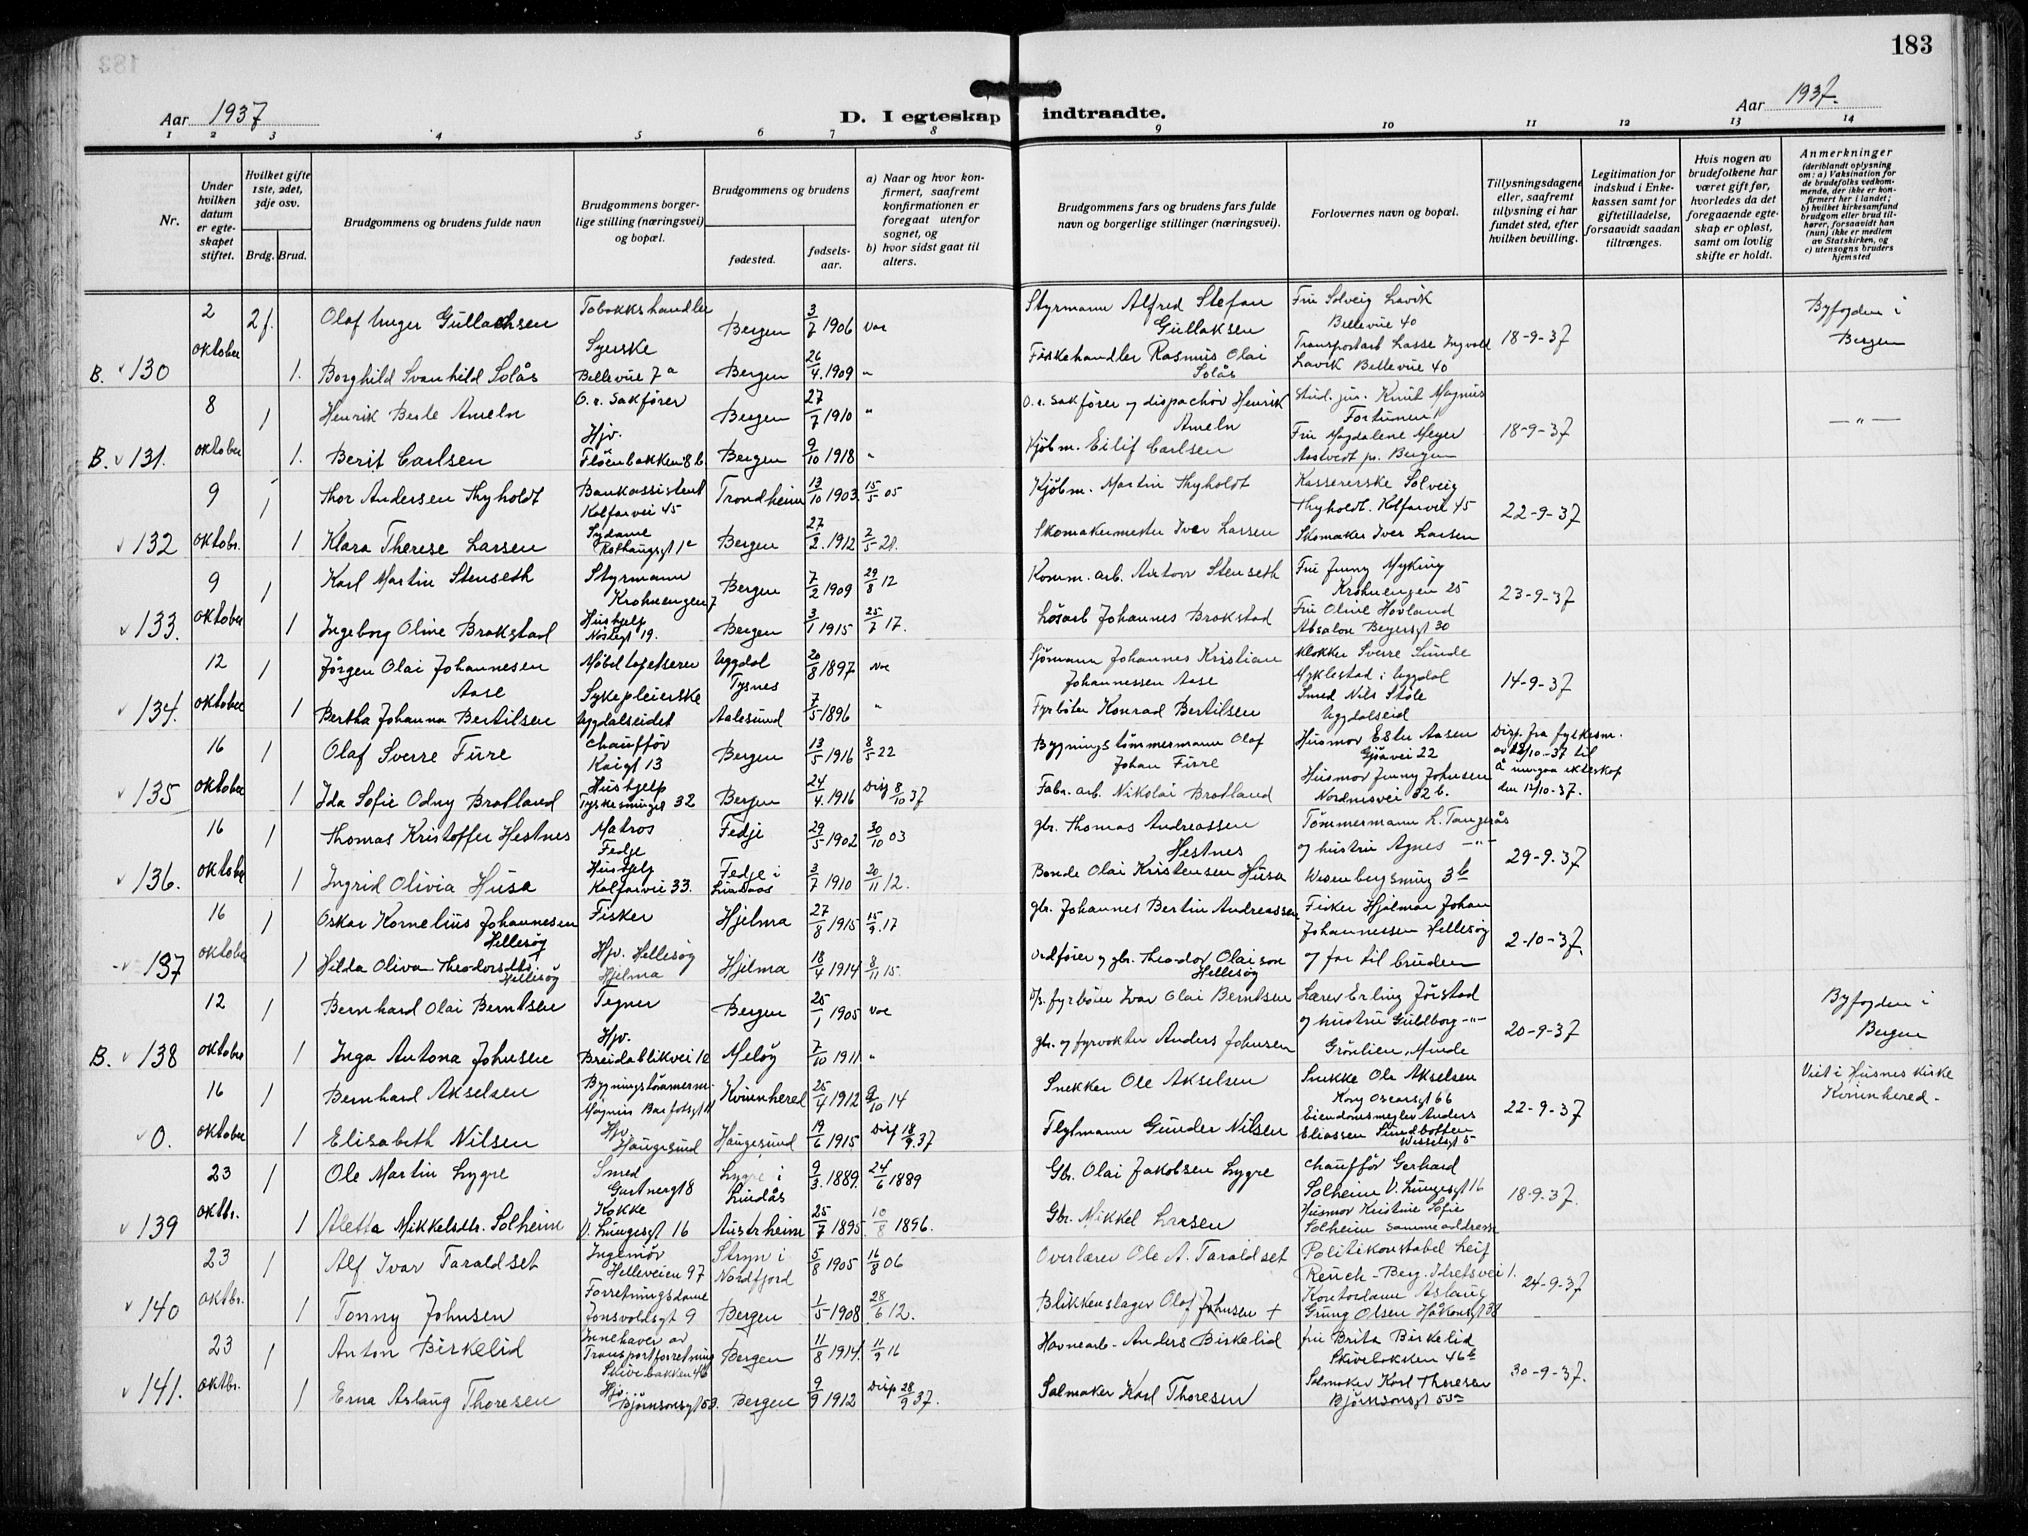 183
Aar 1937
D. I egteskap indtraadte.
Aar 1937.
1 2 3 4 5 6 7 8 9 10 11 12 13 14
Nr.
Under hvilken datum er egteskapet stiftet.
Hvilket gifte 1ste, 2det, 3dje osv.
Brdg. Brud.
Brudgommens og brudens fulde navn
Brudgommens borgerlige stilling (næringsvei) og bopæl.
Brudgommens og brudens
fødested.
fødselsaar.
a) Naar og hvor konfirmert, saafremt konfirmationen er foregaat utenfor sognet, og
b) hvor sidst gaat til alters.
Brudgommens fars og brudens fars fulde navn og borgerlige stillinger (næringsvei).
Forlovernes navn og bopæl.
Tillysningsdagene eller, saafremt tillysning ei har fundet sted, efter hvilken bevilling.
Legitimation for indskud i Enkekassen samt for giftetilladelse, forsaavidt saadan tiltrænges.
Hvis nogen av brudefolkene har været gift før, hvorledes da det foregaaende egteskap er opløst, samt om lovlig skifte er holdt.
Anmerkninger
(deriblandt oplysning om: a) Vaksination for de brudefolks vedkommende, der ikke er konfirmert her i landet; b) hvilket kirkesamfund brudgom eller brud tilhører, forsaavidt han (hun) ikke er medlem av Statskirken, og c) utensogns bruders hjemsted
2 oktober 2f. Olaf Unger Gullachsen Tobakkshandler Bergen 3/7 1906 vac Styrmann Alfred Stefan Gullaksen Fru Solveig Lavik Bellevue 40 18-9-37 Byfogden i Bergen
B. 130 1. Borghild Svanhild Solås Syerske Bellevue 7a Bergen 26/4. 1909 " Fiskehandler Rasmus Olai Solås Transportarb Lasse Ingvald Lavik Bellevue 40
8 oktober 1 Henrik Berle Ameln O. r. Sakfører Bergen 27/7 1910 " O. r. Sakfører og dispachør Henrik Ameln Stud. jur. Knut Magnus Fortunen 1 18-9-37 — " —
B. 131. 1. Berit Carlsen Hjv. Fløenbakken 8 b Bergen 9/10 1918 " Kjøbm. Eilif Carlsen Fru Magdalene Meyer Aastvedt pr. Bergen
9 oktobr. 1 Thor Andersen Thyholdt Bankassistent Kalfarvei 45 Trondheim 13/10 1903. 15/5 05 Kjøbm. Martin Thyholdt Kassererske Solveig Thyholdt. Kalfarvei 45 22-9-37
132 1 Klara Therese Larsen Sydame Rothaugsgt 1c Bergen 27/2. 1912 2/5 21. Skomakermester Iver Larsen Skomaker Iver Larsen
9 oktober 1 Karl Martin Stenseth Styrmann Krohnengen 7 Bergen 7/2 1909 29/8 12 Komm. arb. Anton Stenseth Fru Jenny Myking Krohnengen 25 23-9-37
133. 1 Ingeborg Oline Brakstad Hushjelp Nostegt 19. Bergen 3/1 1915 25/7 17. Løsarb Johannes Brakstad Fru Oline Hovland Absalon Beyersgt 30
12 oktober 1 Jørgen Olai Johannesen Aase Møbeltapetserer Uggdal Tysnes 20/8 1897 vac Sjømann Johannes Kristian Johannessen Aase Klokker Sverre Sunde Myklestad i Uggdal 14-9-37
134. 1 Bertha Johanna Bertilsen Sykepleierske Uggdalseidet Aalesund 7/5 1896 " Fyrbøter Konrad Bertilsen Smed Nils Støle Uggdalseid
16 oktober 1 Olaf Sverre Furre Chauffør Kaigt 13 Bergen 13/5 1916 8/5 22 Bygningstømmermann Olaf Johan Furre Husmor Ester Aasen Gjøavei 22 Disp. fra fylkesm. av 12/10-37 til å inngaa ekteskap den 12/10-37.
135 1 Ida Sofie Odny Bratland Hushjelp Tyskesmuget 32 Bergen 24/4. 1916 Disp 8/10 37 Fabr. arb. Nikolai Bratland Husmor Jenny Johnsen Nordnesvei 32 b.
16 oktober 1 Thomas Kristoffer Hestnes Matros Fedje Fedje 29/5 1902 30/10 03 gbr. Thomas Andreassen Hestnes Tømmermann L. Tangerås og hustru Agnes —"— 29-9-37
136. 1 Ingrid Olivia Husa Hushjelp Kalfarvei 33. Fedje i Lindaas 3/7 1910 20/11 12. Bonde Olai Kristensen Husa Wesenbergsmug 3b
16 oktober 1 Oskar Kornelius Johannesen Hellesøy Fisker Hjelma 27/8 1915 15/9. 17 gbr. Johannes Bertin Andreassen Fisker Hjalmar Johan Johannessen Hellesøy 2-10-37.
137 1 Hilda Oliva Theodorsdtr. Hellesøy Hjv. Hellesøy Hjelma Hjelma 18/4 1914 8/11 15. Ordfører og gbr. Theodor Olaison Hellesøy og far til bruden
12 oktober 1 Bernhard Olai Berntsen Tegner Bergen 25/1 1905 vac fyrbøter Ivar Olai Berntsen Lærer Erling Jørstad og hustru Guldborg —"— 20-9-37 Byfogden i Bergen
B. 138 1 Inga Antona Johnsen Hjv. Breidablikvei 12 Meløy 7/10 1911 " gbr. og fyrvokter Anders Johnsen Grønlien, Minde
16 oktober 1 Bernhard Akselsen Bygningstømmerm. Magnus Barfotsgt 11 Kvinnhered 25/4 1912 9/10 14 Snekker Ole Akselsen Snekker Ole Akselsen Kong Oscarsgt 66 22-9-37 Viet i Husnes kirke Kvinnhered.
0. 1 Elisabeth Nilsen Hjv. Haugesund Haugesund 19/6 1915 Disp 18/9. 37 Flytmann Gunder Nilsen Eiendomsmegler Anders Eliassen Sundbotten Wesselsgt 5
23 oktbr. 1 Ole Martin Lygre Smed Gartnergt 8 Lygre i Lindås 9/3. 1889. 24/6 1889 Gbr. Olai Jakobsen Lygre Chauffør Gerhard Solheim V. Lungegt 16 18-9-37.
139 1 Aletta Mikkelsdtr. Solheim Kokke V. Lungegt 16 Austrheim 25/7 1895. 10/8 1896. Gbr. Mikkel Larsen Husmor Kristine Sofie Solheim samme adresse
23 oktbr. 1 Alf Ivar Taraldset Ingeniør Helleveien 97 Stryn i Nordfjord 5/8 1905 16/8 06 Overlærer Ole A. Taraldset Politikonstabel Leif Reuch-Berg. Idretsvei 1. 24-9-37
140 1 Tonny Johnsen Forretningsdame Jonsvoldsgt 9 Bergen 1/5 1908 28/6 12. Blikkenslager Olaf Johnsen + Kontordame Aslaug Grung Olsen Håkonsgt 38
23 oktbr. 1 Anton Birkelid Innehaver av Transportforretning Skivebakken 46 Bergen 11/8 1914. 11/9 16 Havnearb. Anders Birkelid fru Brita Birkelid Skivebakken 46b 30-9-37.
141. 1 Erna Aslaug Thoresen Hjv. Bjørnsonsgt 53. Bergen 9/9 1912 Disp 28/9 37. Salmaker Karl Thoresen Salmaker Karl Thoresen Bjørnsonsgt 55a